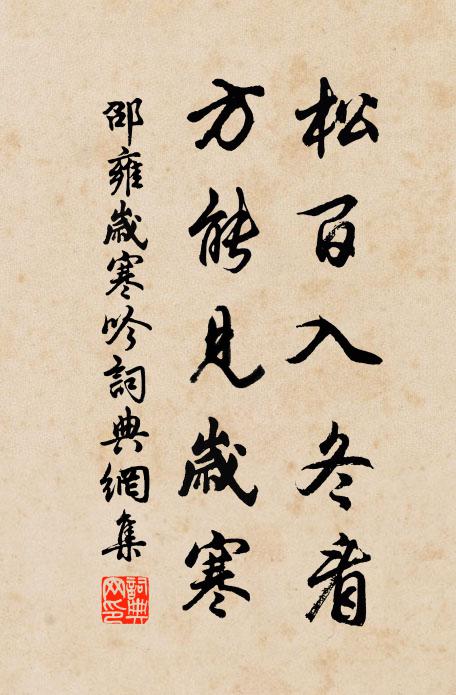 松百入冬看
方能見歲寒
邵雍歲寒吟詞典網集
詞典
网印